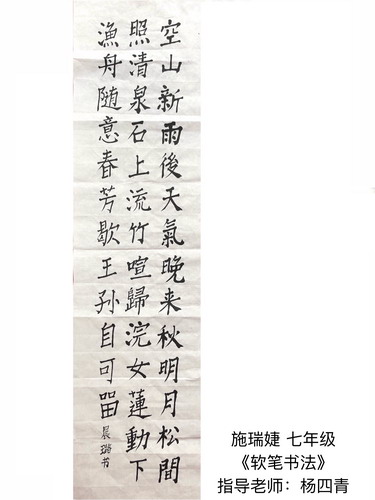 空山新雨後天氣晚来秋明月松間
照清泉石上流竹喧歸浣女蓮動下
漁舟随意春芳歇王孙自可留
晨璐书
施瑞婕 七年级
《软笔书法》
指导老师：杨四青